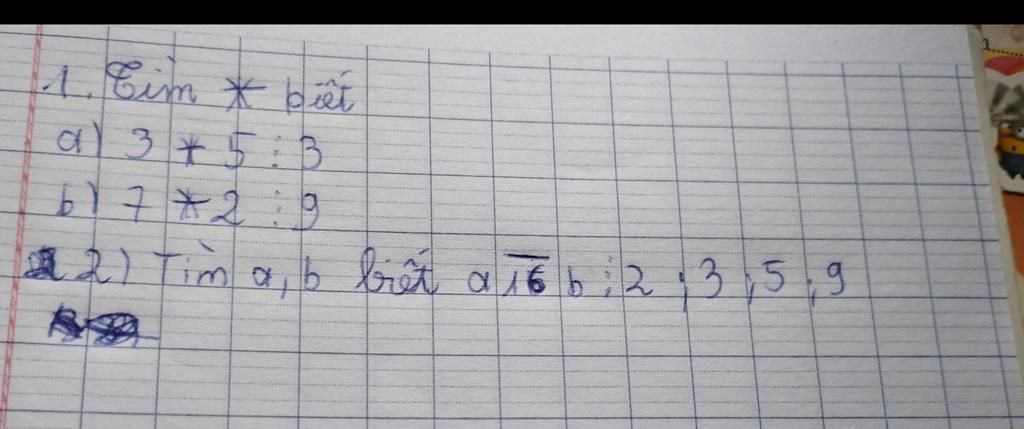 1. Tìm * biết
a) 3 * 5 ⋮ 3
b) 7 * 2 ⋮ 9
2) Tìm a, b biết a 16 b ⋮ 2 ; 3 ; 5 ; 9